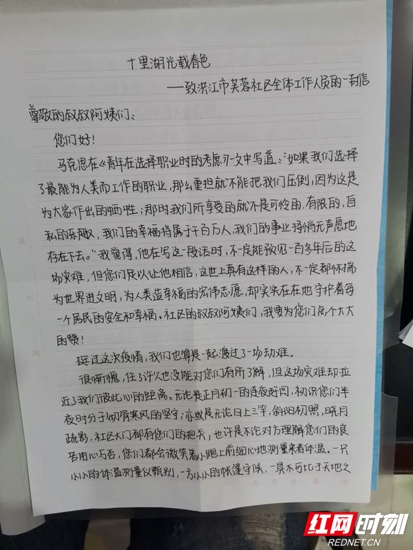 十里湖光载春色
——致洪江市芙蓉社区全体工作人员的一封信
尊敬的叔叔阿姨们：
您们好！
马克思在《青年在选择职业时的考虑》一文中写道："如果我们选择
了最能为人类而工作的职业，那么重担就不能把我们压倒，因为这是
为大家作出的牺牲；那时我们所享受的就不是可怜的、有限的、自
私的乐趣，我们的幸福将属于千百万人，我们的事业将悄无声息地
存在下去。"我觉得，他在写这一段话时，不一定能预见一百多年后的这
场灾难，但您们足以让他相信，这世上真有这样的人，不一定都怀揣
为世界进文明，为人类造幸福的宏伟志愿，却实实在在地守护着每
一个居民的安全和幸福。社区的叔叔阿姨们，我要为您们点个大大
的赞！
挺过这次疫情，我们也算是一起渡过了一场劫难。
很惭愧，住了许久也没能对您们有所了解，但这场灾难却拉
近了我们彼此心的距离。无论是正月初一的连夜好问，初识您们半
夜时分子切寒风的坚守；亦或是无论日上三竿，斜阳初照，晓月
疏影，社区大门都有您们的把关，也许是不论对方理解您们的良
苦用心与否，您们都会微笑着上跑上前细心地测量来者体温。一只
小小的体温测量仪甄别，一方小小的帐篷守候，一具不可比于天地之
红网时刻
REDNET.CN